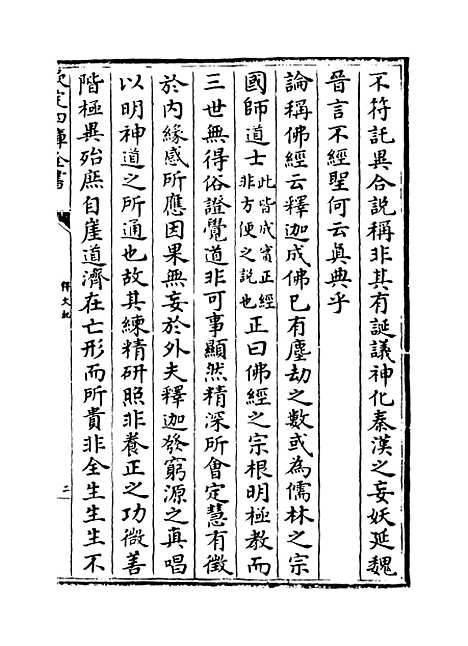 不符託異合說稱非其有誕議神化秦漢之妄妖延魏
晉言不經聖何云真典乎
論稱佛經云釋迦成佛已有塵劫之數或為儒林之宗
國師道士此皆成實正經非方便之說也正曰佛經之宗根明極教而
三世無得俗證覺道非可事顯然精深所會定慧有徵
於內緣感所應因果無妄於外夫釋迦發窮源之真唱
以明神道之所通也故其練精研照非養正之功微善
階極異殆庶自崖道濟在亡形而所貴非全生生生不
欽定四庫全書
釋文紀
二